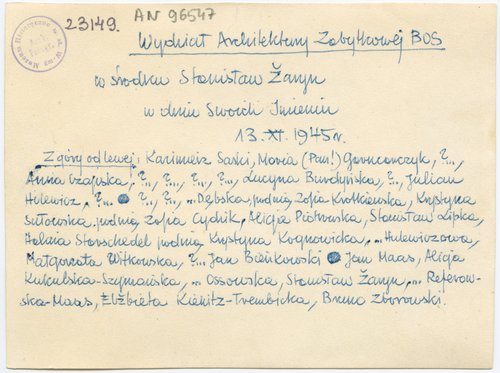 23149. AN 96547
Wydział Architektury Zabytkowej BOS
w środku Stanisław Żaryn
w dniu Swoich Imienin
13.XI.1945r.
Z góry od lewej: Kazimierz Saski, Maria (Pan!) ?...
Anna ?.., ?.., ?.., ?.., Lucyna ?.., Julian
Hulewicz, ?... ?.., ... Dębska, pod nią Zofia Krotkiewska, Krystyna
Sutowska, pod nią Zofia Cydzik, Alicja Piotrowska, Stanisław Lipka,
Halina Starschedel pod nią Krystyna ... Hulewiczowa,
Małgorzata Witkowska, ?... Jan Bieńkowski Jan Maas, Alicja
Kukulska-Szymańska, ... Ossowska, Stanisław Żaryn, ... Referow-
ska-Maas, Elżbieta Kienitz-Trembicka, Bruno Zborowski.